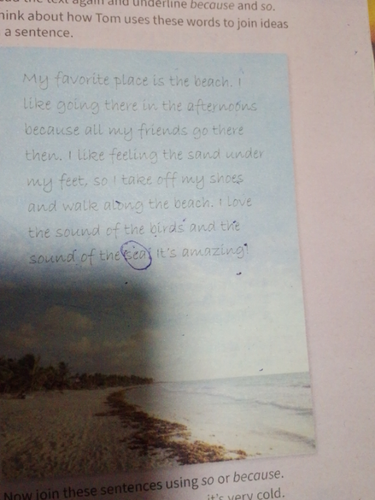 the text again and underline because and so.
hink about how Tom uses these words to join ideas
a sentence.
My favorite place is the beach. I
like going there in the afternoons
because all my friends go there
then. I like feeling the sand under
my feet, so I take off my shoes
and walk along the beach. I love
the sound of the birds and the
sound of the sea. It's amazing!
Now join these sentences using so or because.
it's very cold.